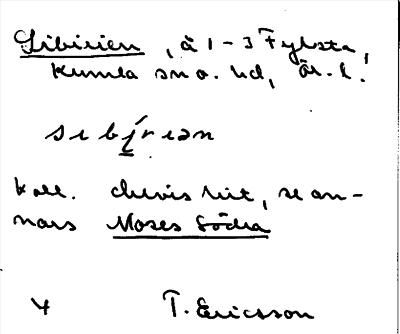 Sibirien, å 1-3 Fylsta,
Kumla sn o. hd, Ör. l.
sibirian
Koll. delvis hit, se an-
nars Moses Södra
4 T. Ericsson